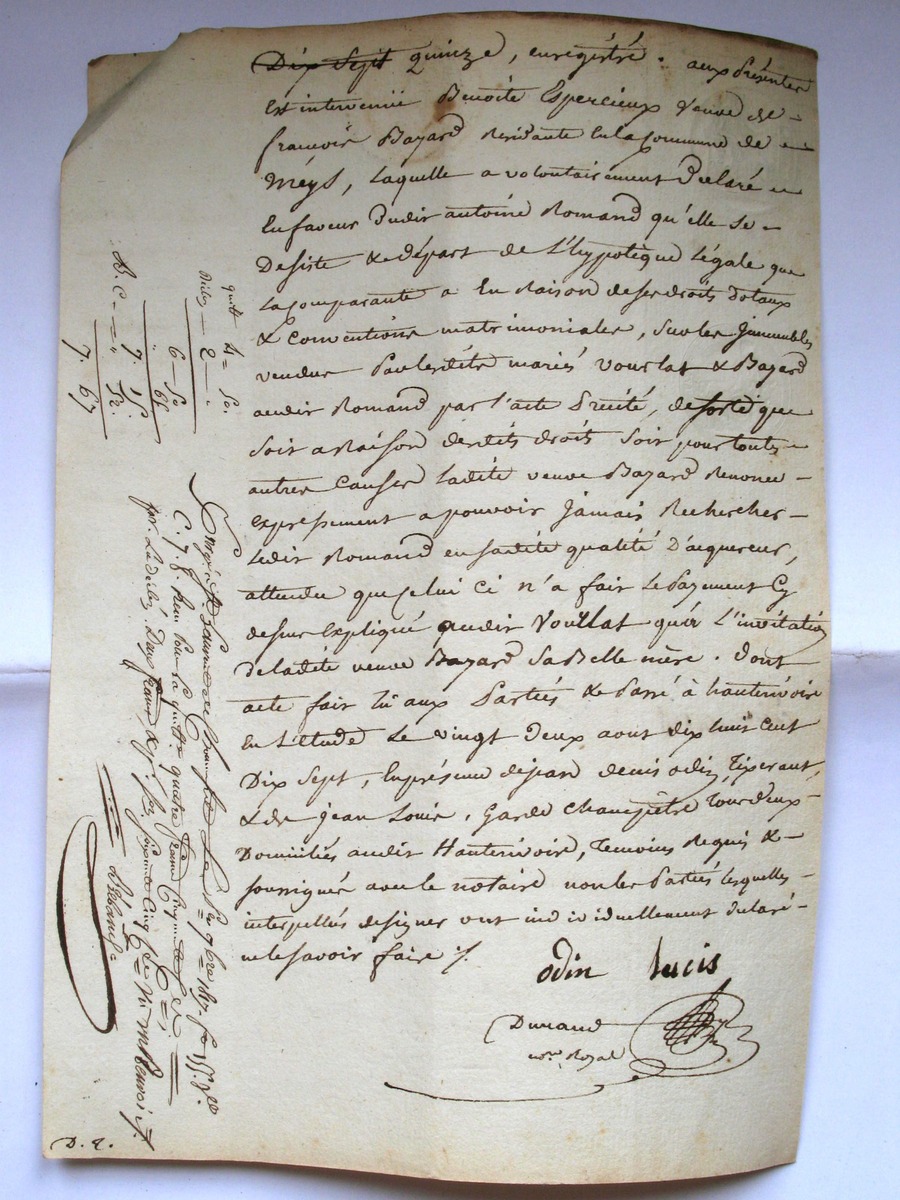 Dix Sept quinze, enregistré. aux présentes
Est intervenüe Benoite Espercieux veuve de
françois Bazard Residante En la Commune de
Meys, Laquelle a volontairement Déclaré
En faveur Dudit antoine Romand qu'elle se
Desiste & départ de L'hypotèque Légale que
La Comparante a En Raison de ses droits dotaux
& Conventions matrimoniales, Sur les jmmeubles
vendus Par lesdits mariés vourlat & Bazard
audit Romand par l'acte Précité, de sorte que
Soit a Raison desdits droits Soit pour toutes
autres Causes Ladite veuve Bazard Renonce
expressement a pouvoir jamais Rechercher
Ledit Romand en sadite qualité D'acquereur,
attendu que Celui ci n'a fait Le Payement Cy
dessus Expliqué audit Vourlat qu'à L'invitation
de ladite veuve Bazard Sa Belle mère. Dont
acte fait lu aux Parties & Passé à hauterivoire
En L'Etude Le vingt Deux aout dix huit Cent
Dix Sept, En présence de jean denis odin, Tisserant,
& de jean Louis, Garde Champêtre Tous deux
Domiciliés audit Hauterivoire, Temoins Requis &
soussignés avec le notaire non les Parties lesquelles
interpellés de signer ont individuellement declaré
ne le savoir faire ./.
odin lucis
Durand
nore. Royal
quitt 4 = 50.
2 —
6 — 50
65
7. 15.
D. C — 52
7. 67
C. 7. 8. Reçu Pour La quitte. quatre francs Cinquante Ces
D. 2.